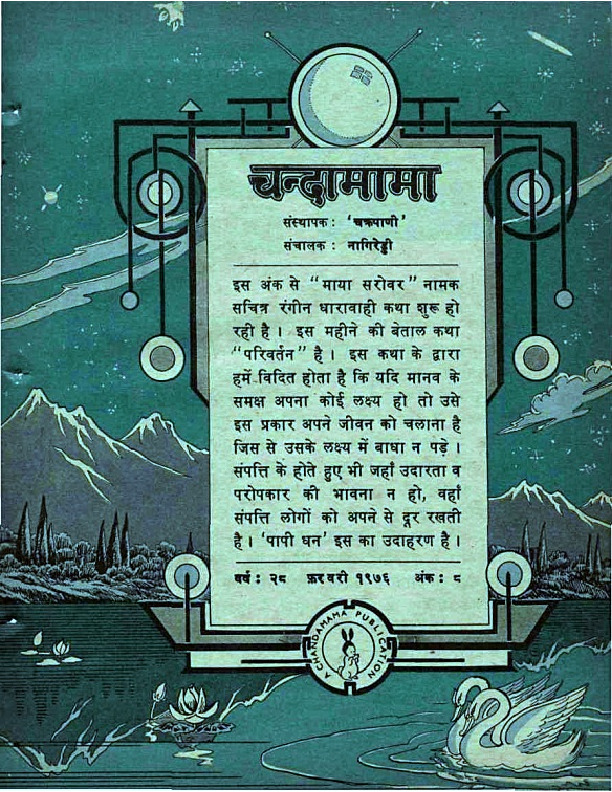 चन्दामामा
संस्थापक : 'चक्रपाणी'
संचालक : नागिरेड्डी
इस अंक से "माया सरोवर" नामक
सचित्र रंगीन धारावाही कथा शुरू हो
रही है । इस महीने की बेताल कथा
"परिवर्तन" है । इस कथा के द्वारा
हमें विदित होता है कि यदि मानव के
समक्ष अपना कोई लक्ष्य हो तो उसे
इस प्रकार अपने जीवन को चलाना है
जिस से उसके लक्ष्य में बाधा न पड़े ।
संपत्ति के होते हुए भी जहाँ उदारता व
परोपकार की भावना न हो, वहाँ
संपत्ति लोगों को अपने से दूर रखती
है । 'पापी धन' इस का उदाहरण है ।
वर्ष : २८ फ़रवरी १९७६ अंक : ८
A CHANDAMAMA PUBLICATION